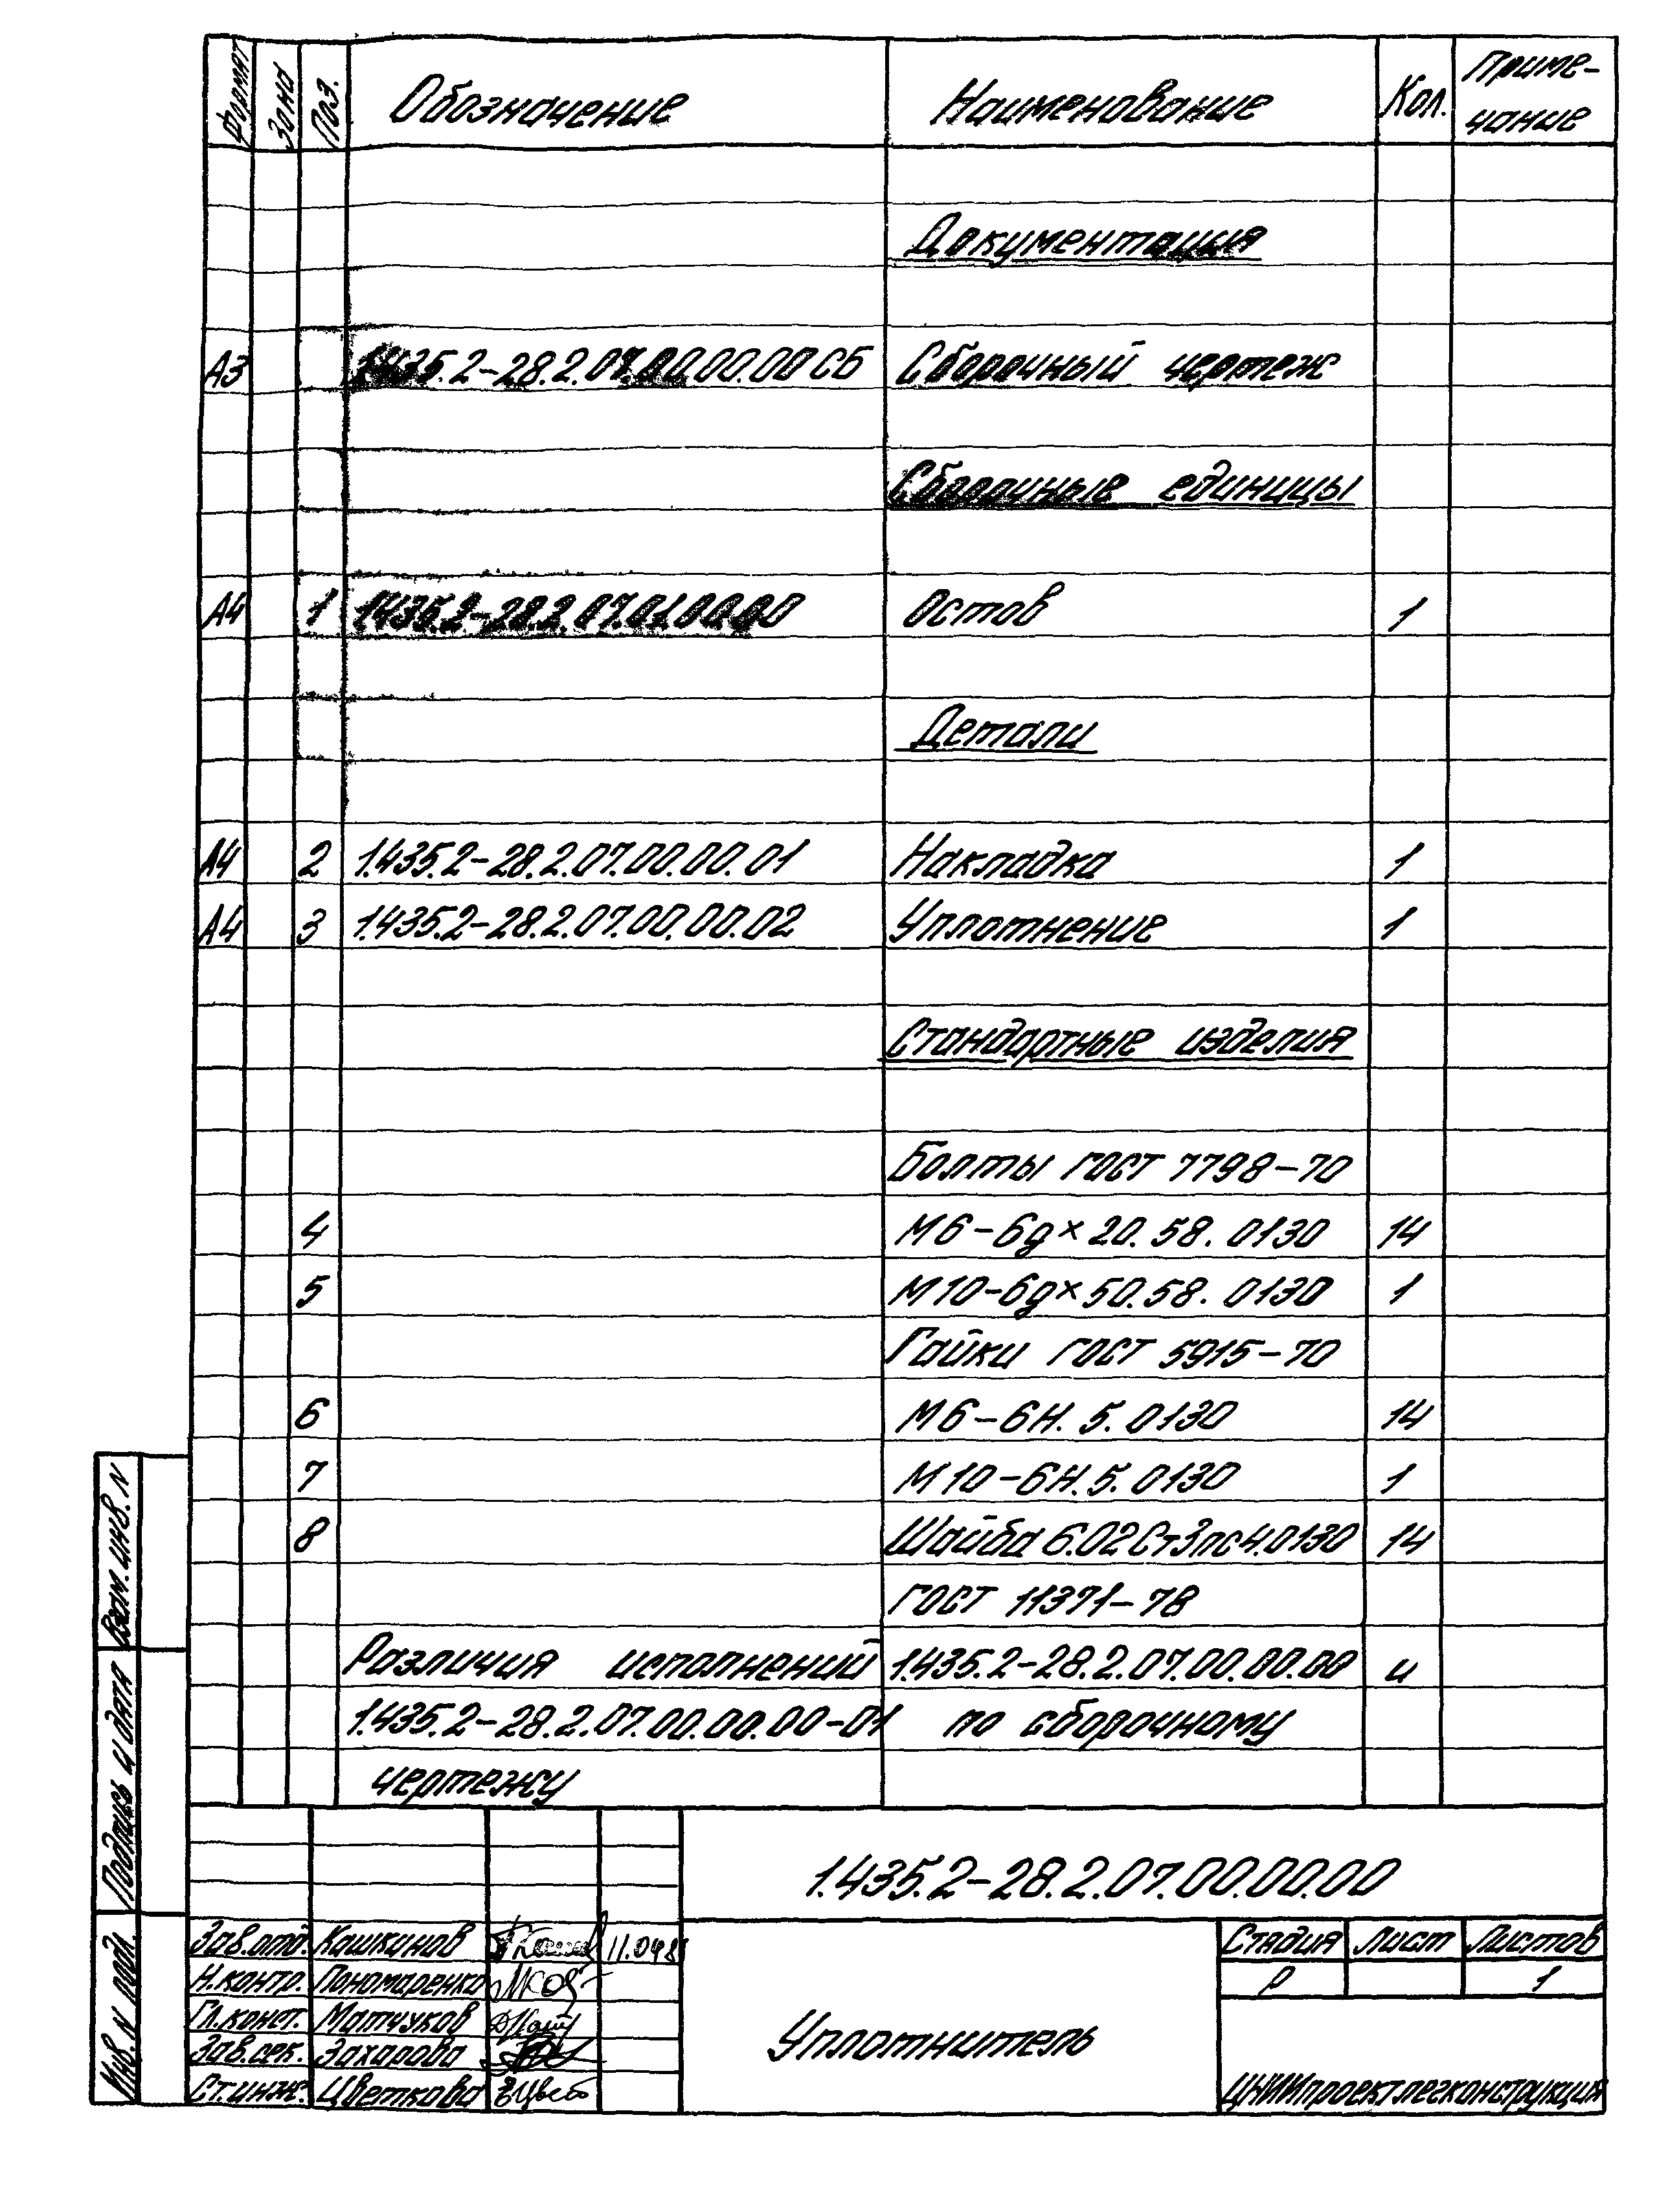 Формат Зона Поз. Обозначение Наименование Кол. Приме-
чание
Документация
А3 1.435.2-28.2.07.00.00.00 СБ Сборочный чертеж
Сборочные единицы
А4 1 1.435.2-28.2.07.01.00.00 Остов 1
Детали
А4 2 1.435.2-28.2.07.00.00.01 Накладка 1
А4 3 1.435.2-28.2.07.00.00.02 Уплотнение 1
Стандартные изделия
Болты ГОСТ 7798-70
4 М6-6g×20.58.0130 14
5 М10-6g×50.58.0130 1
Гайки ГОСТ 5915-70
6 М6-6Н.5.0130 14
7 М10-6Н.5.0130 1
8 Шайба 6.02Ст3пс4.0130 14
ГОСТ 11371-78
Различия исполнений 1.435.2-28.2.07.00.00.00 и
1.435.2-28.2.07.00.00.00-01 по сборочному
чертежу
Взам. инв. N
Подпись и дата
Инв. N подл.
1.435.2-28.2.07.00.00.00
Зав.отд. Кашкинов
Н.контр. Пономаренко
Гл.конст. Матчуков
Зав.сек. Захарова
Ст.инж. Цветкова
Уплотнитель
Стадия Лист Листов
Р 1
ЦНИИпроектлегконструкция